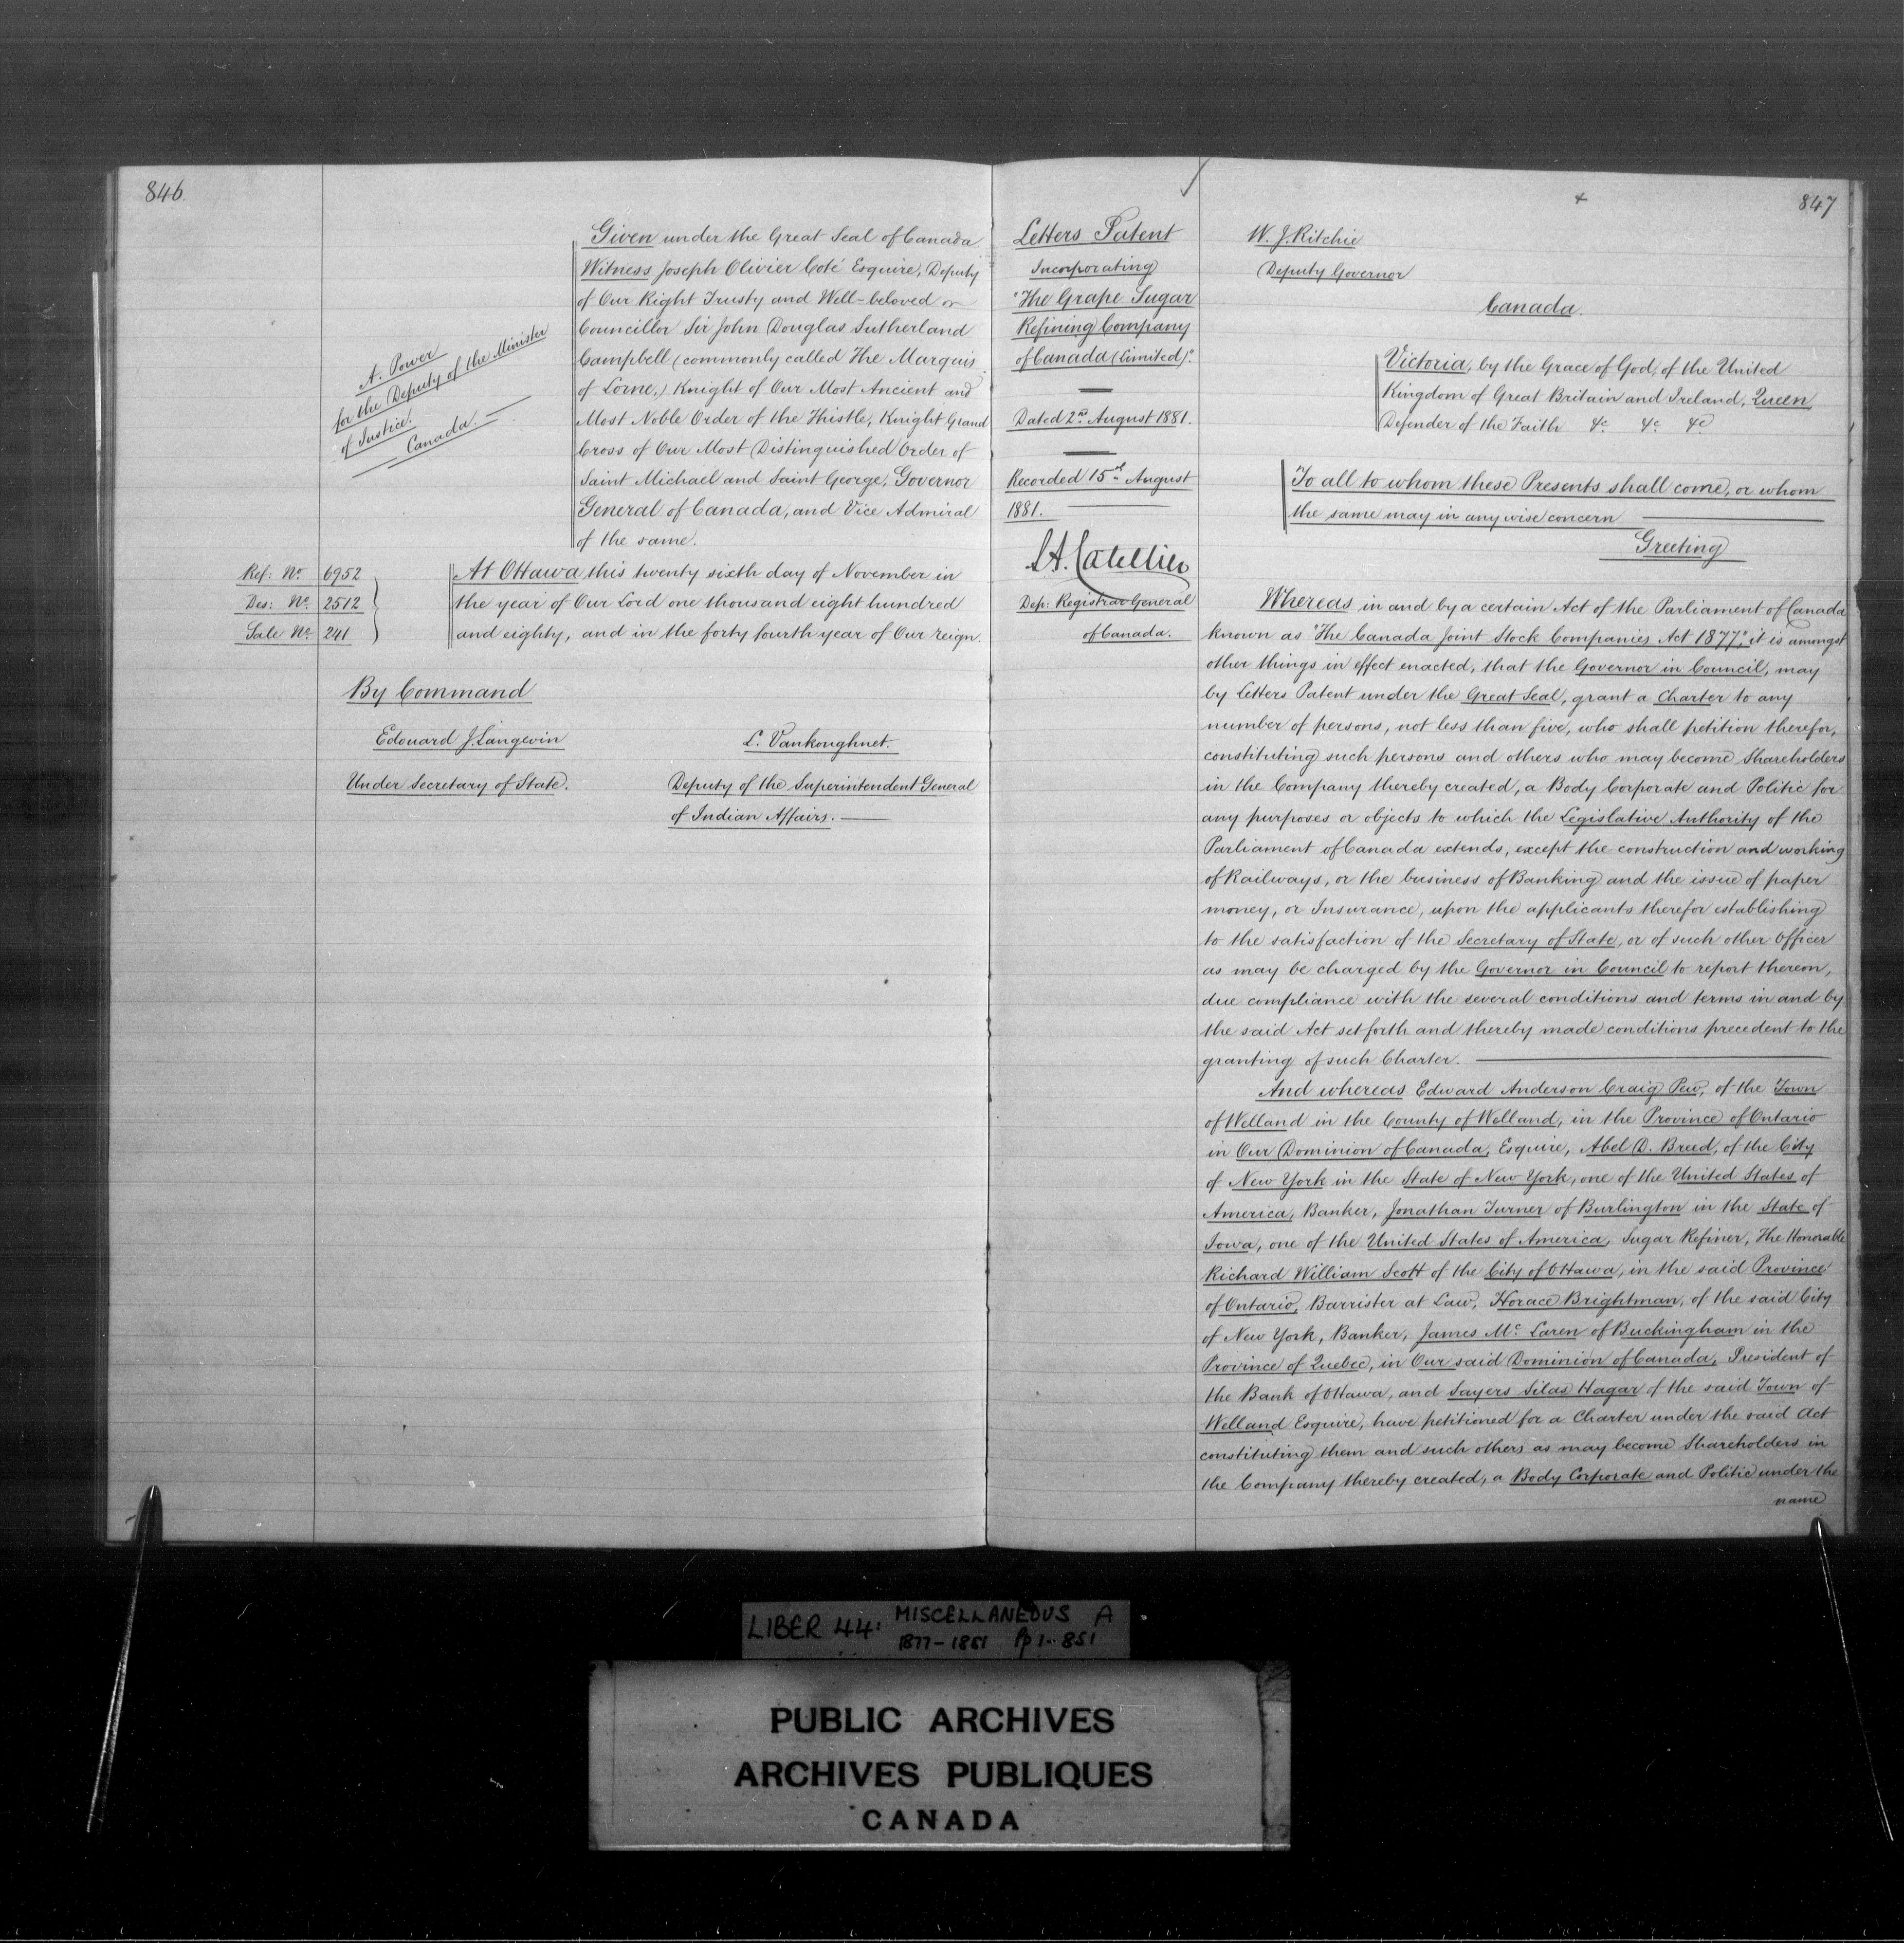 846.
Given under the Great Seal of Canada
Witness Joseph Olivier Coté Esquire, Deputy
of Our Right Trusty and Well-beloved
Councillor Sir John Douglas Sutherland
Campbell (commonly called The Marquis
of Lorne,) Knight of Our Most Ancient and
Most Noble Order of the Thistle, Knight Grand
Cross of Our Most Distinguished Order of
Saint Michael and Saint George, Governor
General of Canada, and Vice Admiral
of the same.
A. Power
for the Deputy of the Minister
of Justice.
Canada.
Ref: No 6952
Des: No 2512
Sale No 241
At Ottawa this twenty sixth day of November in
the year of Our Lord one thousand eight hundred
and eighty, and in the forty fourth year of Our reign.
By Command
Edouard J. Langevin
Under Secretary of State.
L. Vankoughnet.
Deputy of the Superintendent General
of Indian Affairs.
847
Letters Patent
Incorporating
"The Grape Sugar
Refining Company
of Canada (Limited)".
Dated 2nd August 1881.
Recorded 15th August
1881.
L.A. Catellier
Dep: Registrar General
of Canada.
W. J. Ritchie
Deputy Governor
Canada.
Victoria, by the Grace of God, of the United
Kingdom of Great Britain and Ireland, Queen,
Defender of the Faith &c &c &c
To all to whom these Presents shall come, or whom
the same may in anywise concern
Greeting
Whereas in and by a certain Act of the Parliament of Canada
known as "The Canada Joint Stock Companies Act 1877," it is amongst
other things in effect enacted, that the Governor in Council, may
by Letters Patent under the Great Seal, grant a Charter to any
number of persons, not less than five, who shall petition therefor,
constituting such persons and others who may become Shareholders
in the Company thereby created, a Body Corporate and Politic for
any purposes or objects to which the Legislative Authority of the
Parliament of Canada extends, except the construction and working
of Railways, or the business of Banking and the issue of paper
money, or Insurance, upon the applicants therefor establishing
to the satisfaction of the Secretary of State, or of such other Officer
as may be charged by the Governor in Council to report thereon,
due compliance with the several conditions and terms in and by
the said Act set forth and thereby made conditions precedent to the
granting of such Charter.
And whereas Edward Anderson Craig Pew, of the Town
of Welland in the County of Welland, in the Province of Ontario
in Our Dominion of Canada, Esquire, Abel D. Breed, of the City
of New York in the State of New York, one of the United States of
America, Banker, Jonathan Turner of Burlington in the State of
Iowa, one of the United States of America, Sugar Refiner, The Honorable
Richard William Scott of the City of Ottawa, in the said Province
of Ontario, Barrister at Law, Horace Brightman, of the said City
of New York, Banker, James Mc Laren of Buckingham in the
Province of Quebec, in Our said Dominion of Canada, President of
the Bank of Ottawa, and Sayers Silas Hagar of the said Town of
Welland Esquire, have petitioned for a Charter under the said Act
constituting them and such others as may become Shareholders in
the Company thereby created, a Body Corporate and Politic under the
name
LIBER 44: MISCELLANEOUS A
1877-1881 Pp 1-851
PUBLIC ARCHIVES
ARCHIVES PUBLIQUES
CANADA